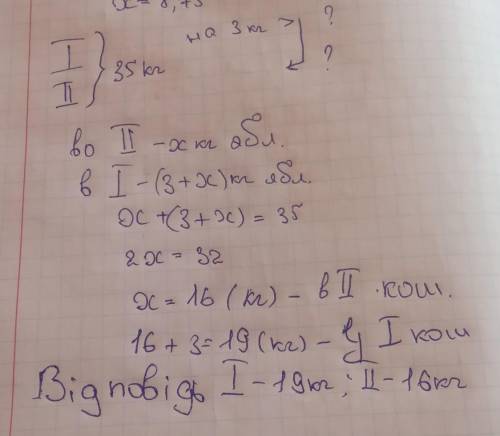 x = 8,75
на 3 кг > ?
I
II } 35 кг
?
во II - x кг ябл.
в I - (3 + x) кг ябл.
x + (3 + x) = 35
2x = 32
x = 16 (кг) - в II кош.
16 + 3 = 19 (кг) - у I кош
Відповідь I - 19 кг; II - 16 кг